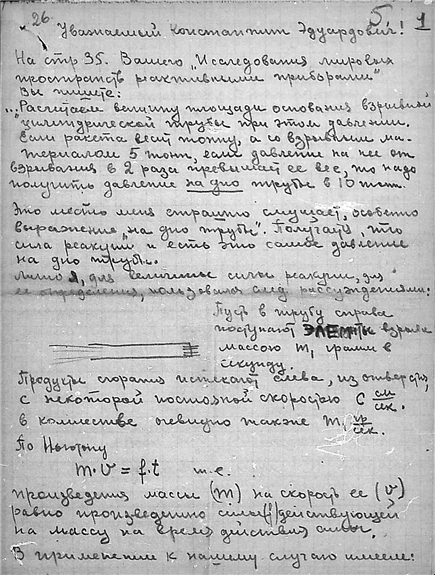 26
5 1
Уважаемый Константин Эдуардович!
На стр 35. Вашего "Исследования мировых
пространств реактивными приборами"
Вы пишете:
"...Расчитаем величину площади основания взрывной
цилиндрической трубы при этом давлении.
Если ракета весит тонну, а со взрывными ма-
териалом 5 тонн, если давление на нее от
взрывания в 2 раза превышает ее вес, то надо
получить давление на дно трубы в 10 тонн.
Это место меня страшно смущает, особенно
выражение "на дно трубы". Получается, что
сила реакции и есть это самое давление
на дно трубы.
Лично я, для величины силы реакции, для
ее определения, пользовался след. рассуждениями:
Пусть в трубу справа
поступают ЭЛЕМЕНТЫ взрыва
массою m, грамм в
секунду.
Продукты сгорания истекают слева, из отверстия,
с некоторой постоянной скоростью C см/сек.
в количестве очевидно также m, гр/сек.
По Ньютону
m·v = f·t т.е.
произведения массы (m) на скорость ее (v)
равно произведению силы (f) действующей
на массу на время действия силы.
В применении к нашему случаю имеем: